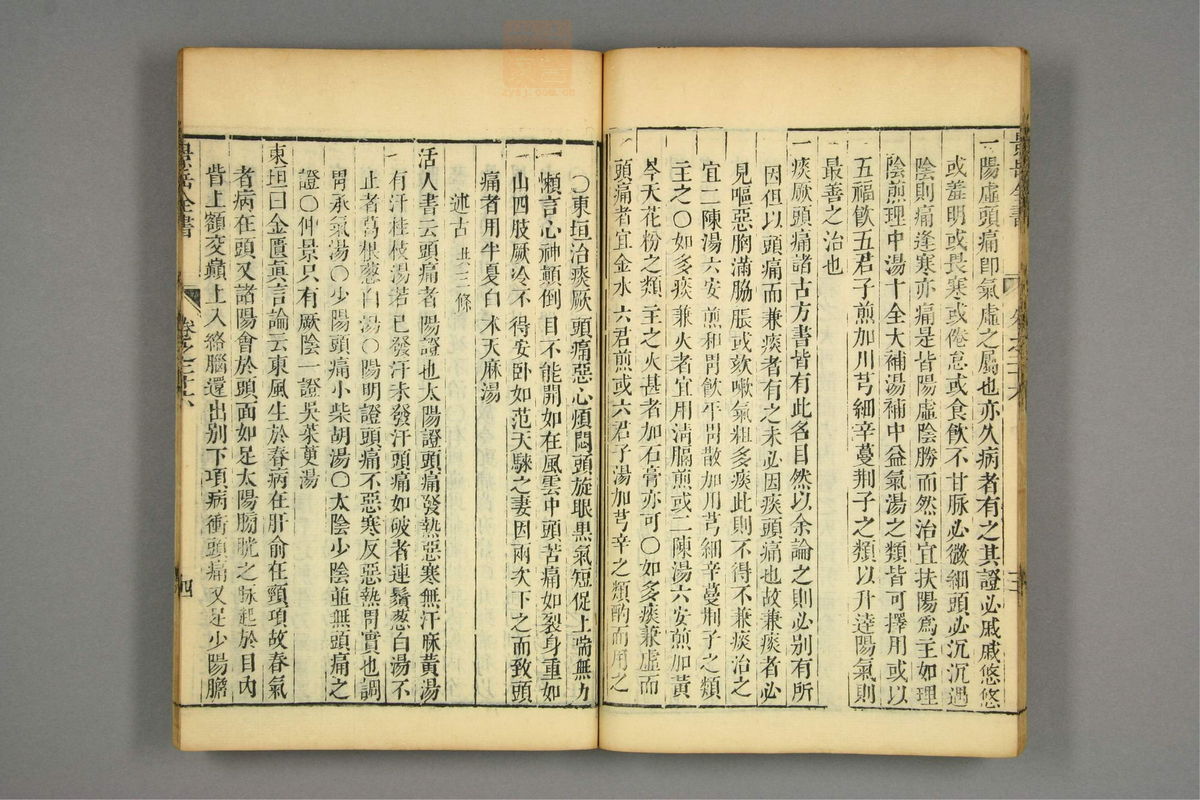 一陽虛頭痛卽氣虛之屬也亦久病者有之其證必戚戚悠悠
或羞明或畏寒或倦怠或食飲不甘脉必微細頭必沉沉遇
陰則痛逢寒亦痛是皆陽虛陰勝而然治宜扶陽爲主如理
陰煎理中湯十全大補湯補中益氣湯之類皆可擇用或以
五福飲五君子煎加川芎細辛蔓荆子之類以升達陽氣則
最善之治也
一痰厥頭痛諸古方書皆有此名目然以余論之則必别有所
因但以頭痛而兼痰者有之未必因痰頭痛也故兼痰者必
見嘔惡胸滿脇脹或欬嗽氣粗多痰此則不得不兼痰治之
宜二陳湯六安煎和胃飲平胃散加川芎細辛蔓荆子之類
主之〇如多痰兼火者宜用清膈煎或二陳湯六安煎加黃
芩天花粉之類主之火甚者加石膏亦可〇如多痰兼虛而
頭痛者宜金水六君煎或六君子湯加芎辛之類酌而用之
〇東垣治痰厥頭痛惡心煩悶頭旋眼黒氣短促上喘無力
懶言心神顛倒目不能開如在風雲中頭苦痛如裂身重如
山四肢厥冷不得安卧如范天騋之妻因兩次下之而致頭
痛者用半夏白术天麻湯
述古 共三條
活人書云頭痛者陽證也太陽證頭痛發熱惡寒無汗麻黃湯
有汗桂枝湯若已發汗未發汗頭痛如破者連鬚葱白湯不
止者葛根葱白湯〇陽明證頭痛不惡寒反惡熱胃實也調
胃承氣湯〇少陽頭痛小柴胡湯〇太陰少陰並無頭痛之
證〇仲景只有厥陰一證吳茱萸湯
東垣曰金匱眞言論云東風生於春病在肝俞在頸項故春氣
者病在頭又諸陽會於頭面如足太陽膀胱之脉起於目內
眥上額交巔上入絡腦還出别下項病衝頭痛又足少陽膽
景岳全書
卷之二十六
四